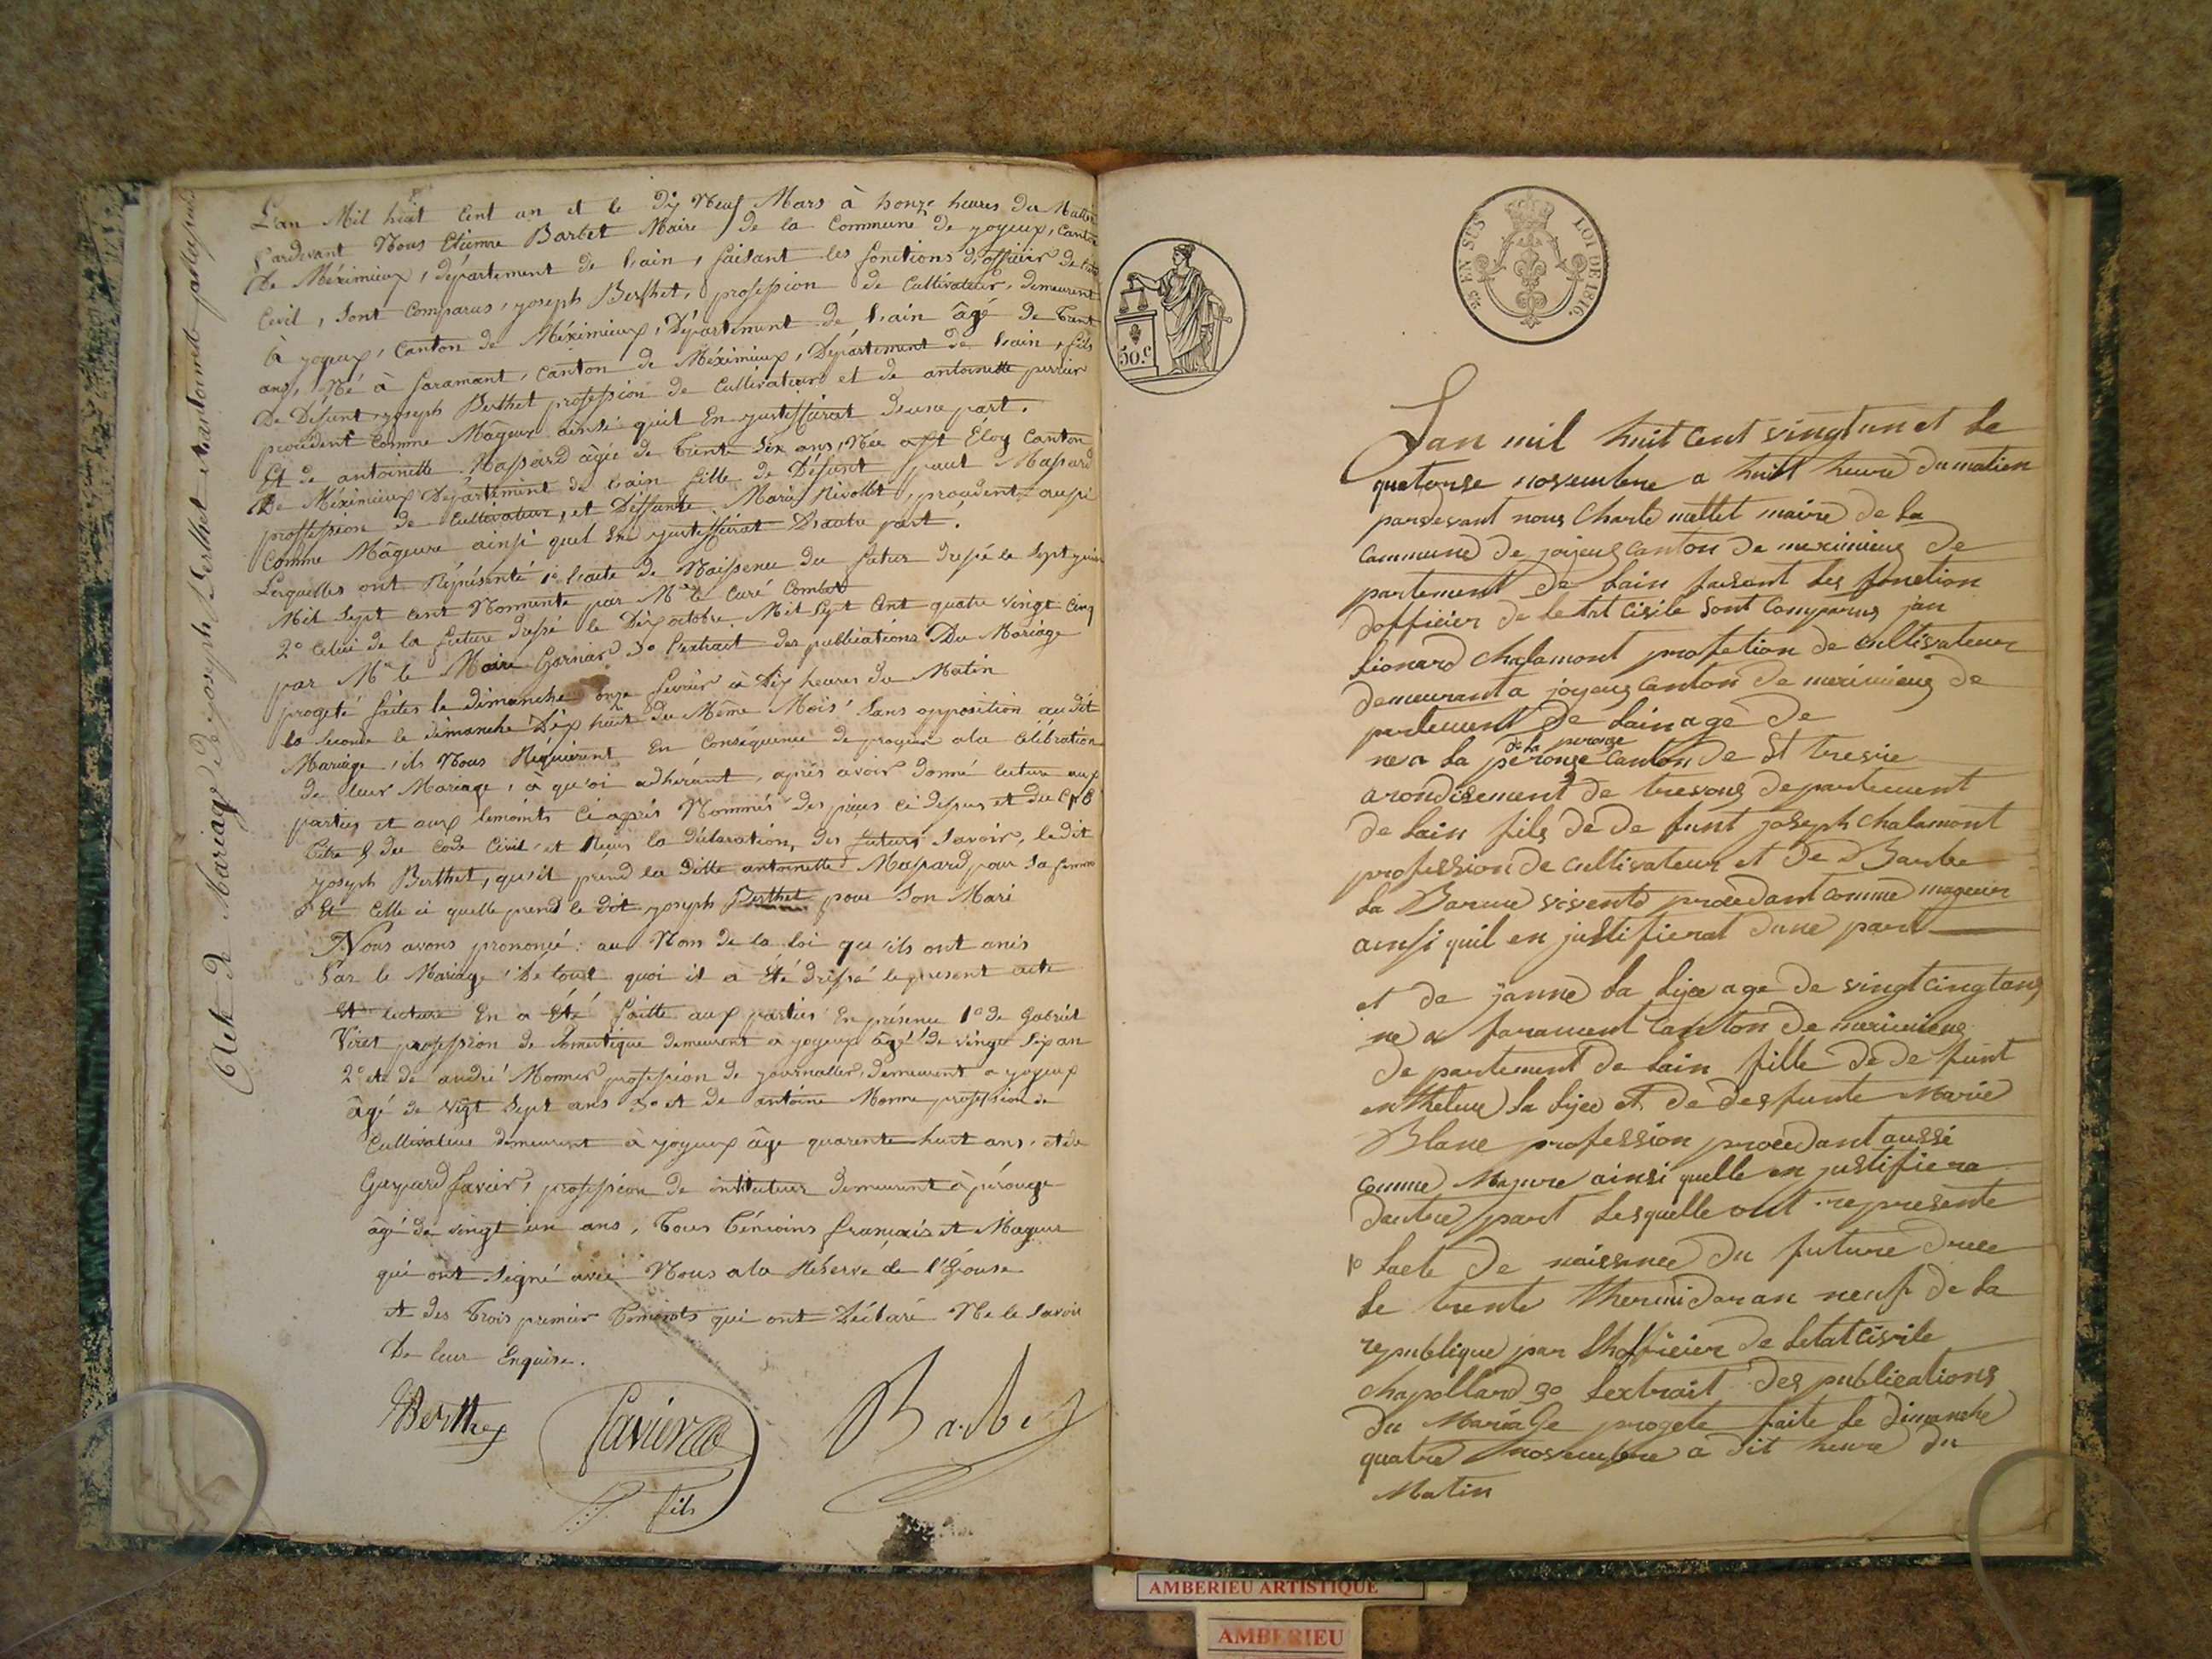 Acte de Mariage de joseph Berthet et antoinette
L'an Mil huit Cent an et le dix Neuf Mars à honze heures du Mattin
Pardevant Nous Etienne Barbet Maire de la Commune de joyeux, Canton
De Méximieux, département de l'ain, faisant les fonctions d'officier de
Civil, sont Comparus, joseph Berthet, profession de Cultivateur, demeurent
à joyeux, Canton de Méximieux, Département de l'ain âgé de Trent
ans, Né à faramant, Canton de Méximieux, Département de l'ain, fils
De Défunt joseph Berthet profession de Cultivateur et de antoinette perrier
procédent Comme Mâgeur ainsi quil En justiffirat d'une part.
Et de antoinette Massard âgée de Trente Six ans, Née a st Éloy Canton
De Méximieux Département de l'ain fille de Défunt paul Massard
proffession de Cultivateur, et Deffunte Marie Nivollet, procedent aussi
Comme Mâgeure ainsi quel En justiffirat D'autre part.
Lesquelles ont Réprésenté 1° l'acte de Naissence du futur dressé le Sept juin
Mil Sept Cent Nonnente par Mr le Curé Combet
2° Celui de la future dressé le Dix octobre Mil Sept Cent quatre vingt Cinq
par Mr le Maire Garnier 3° l'extrait des publications Du Mariage
progeté faites le dimanche onze fevrier à Dix heures du Matin
la seconde le dimanche Dix huit du Même Mois, Sans opposition au dit
Mariage, ils Nous Réquierent En Conséquence de progéder a la Célébration
de leur Mariage, à qu'oi adhérant, après avoir donné lecture aux
parties et aux temoints Ci après Nommés des pièces Ci dessus et du
titre 5 du Code Civil, et Reçus la déclaration, des futurs Savoir, le dit
joseph Berthet, qu'il prend la ditte antoinette Massard pour Sa femme
Et Celle ci quelle prend le dit joseph Berthet pour Son Mari
Nous avons prononcé: au Nom de la loi qu'ils ont anis
Par le Mariage, De tout quoi il a Été dressé le present acte
Et lecture En a Été faitte aux parties En présence 1° de Gabriel
Viret profession de Domestique demeurent a joyeux âgé de vingt Six an
2° et de andré Monner profession de journallier, demeurent a joyeux
âgé de vigt Sept ans 3° et de antoine Monne profession de
Cultivateur demeurent à joyeux âge quarente huit ans, et de
Gaspard favier, profession de instituteur demeurent à pérouge
âgé de vingt un ans, Tous témoins français et Mageur
qui ont Signé avec Nous a la Réserve de l'Épouse
et des Trois premier temoints qui ont Déclaré Ne le Savoir
De leur Enquise.
Berthet favier Barbet
fils
50.c
25 EN SUS LOI DE 1816.
Lan mil huit Cent vingt un et Le
quatorse novembre a huit heure du matien
pardevant nous Charle mallet maire de La
Commune de joijeus Canton de meximieus de
partement de Lain faisant Les fonction
dofficier de letat Civile Sont Comparus jan
Lionard chalamont profetion de cultivateur
demeurant a joyeus Canton de meximieus de
partement de Lain age de
de la perouse
ne a La perouge Canton de St tresvie
arondisement de trevous departement
de Lain fils de de funt joseph chalamont
profession de cultivateur et de Barbe
La Barme vivente procedant comme mageur
ainsi quil en justifierat dune part
et de janne La Lijee age de vingt cingt ans
ne a farament Canton de meximieus
de partement de Lain fille de de funt
enthelme La Lijee et de desfunte Marie
Blanc profession procedant aussi
comme Majure ainsi quelle en justifiera
dautre part Lesquelle ont représente
1° Lacte de naissence du future dresse
Le trente thermidor an neuf de La
republique par Lhofficier de Letat civile
chapolland 3° Lextrait des publications
du Mariage progete faite Le dimanche
quatre novembre a dit heure du
Matin
AMBERIEU ARTISTIQUE
AMBERIEU